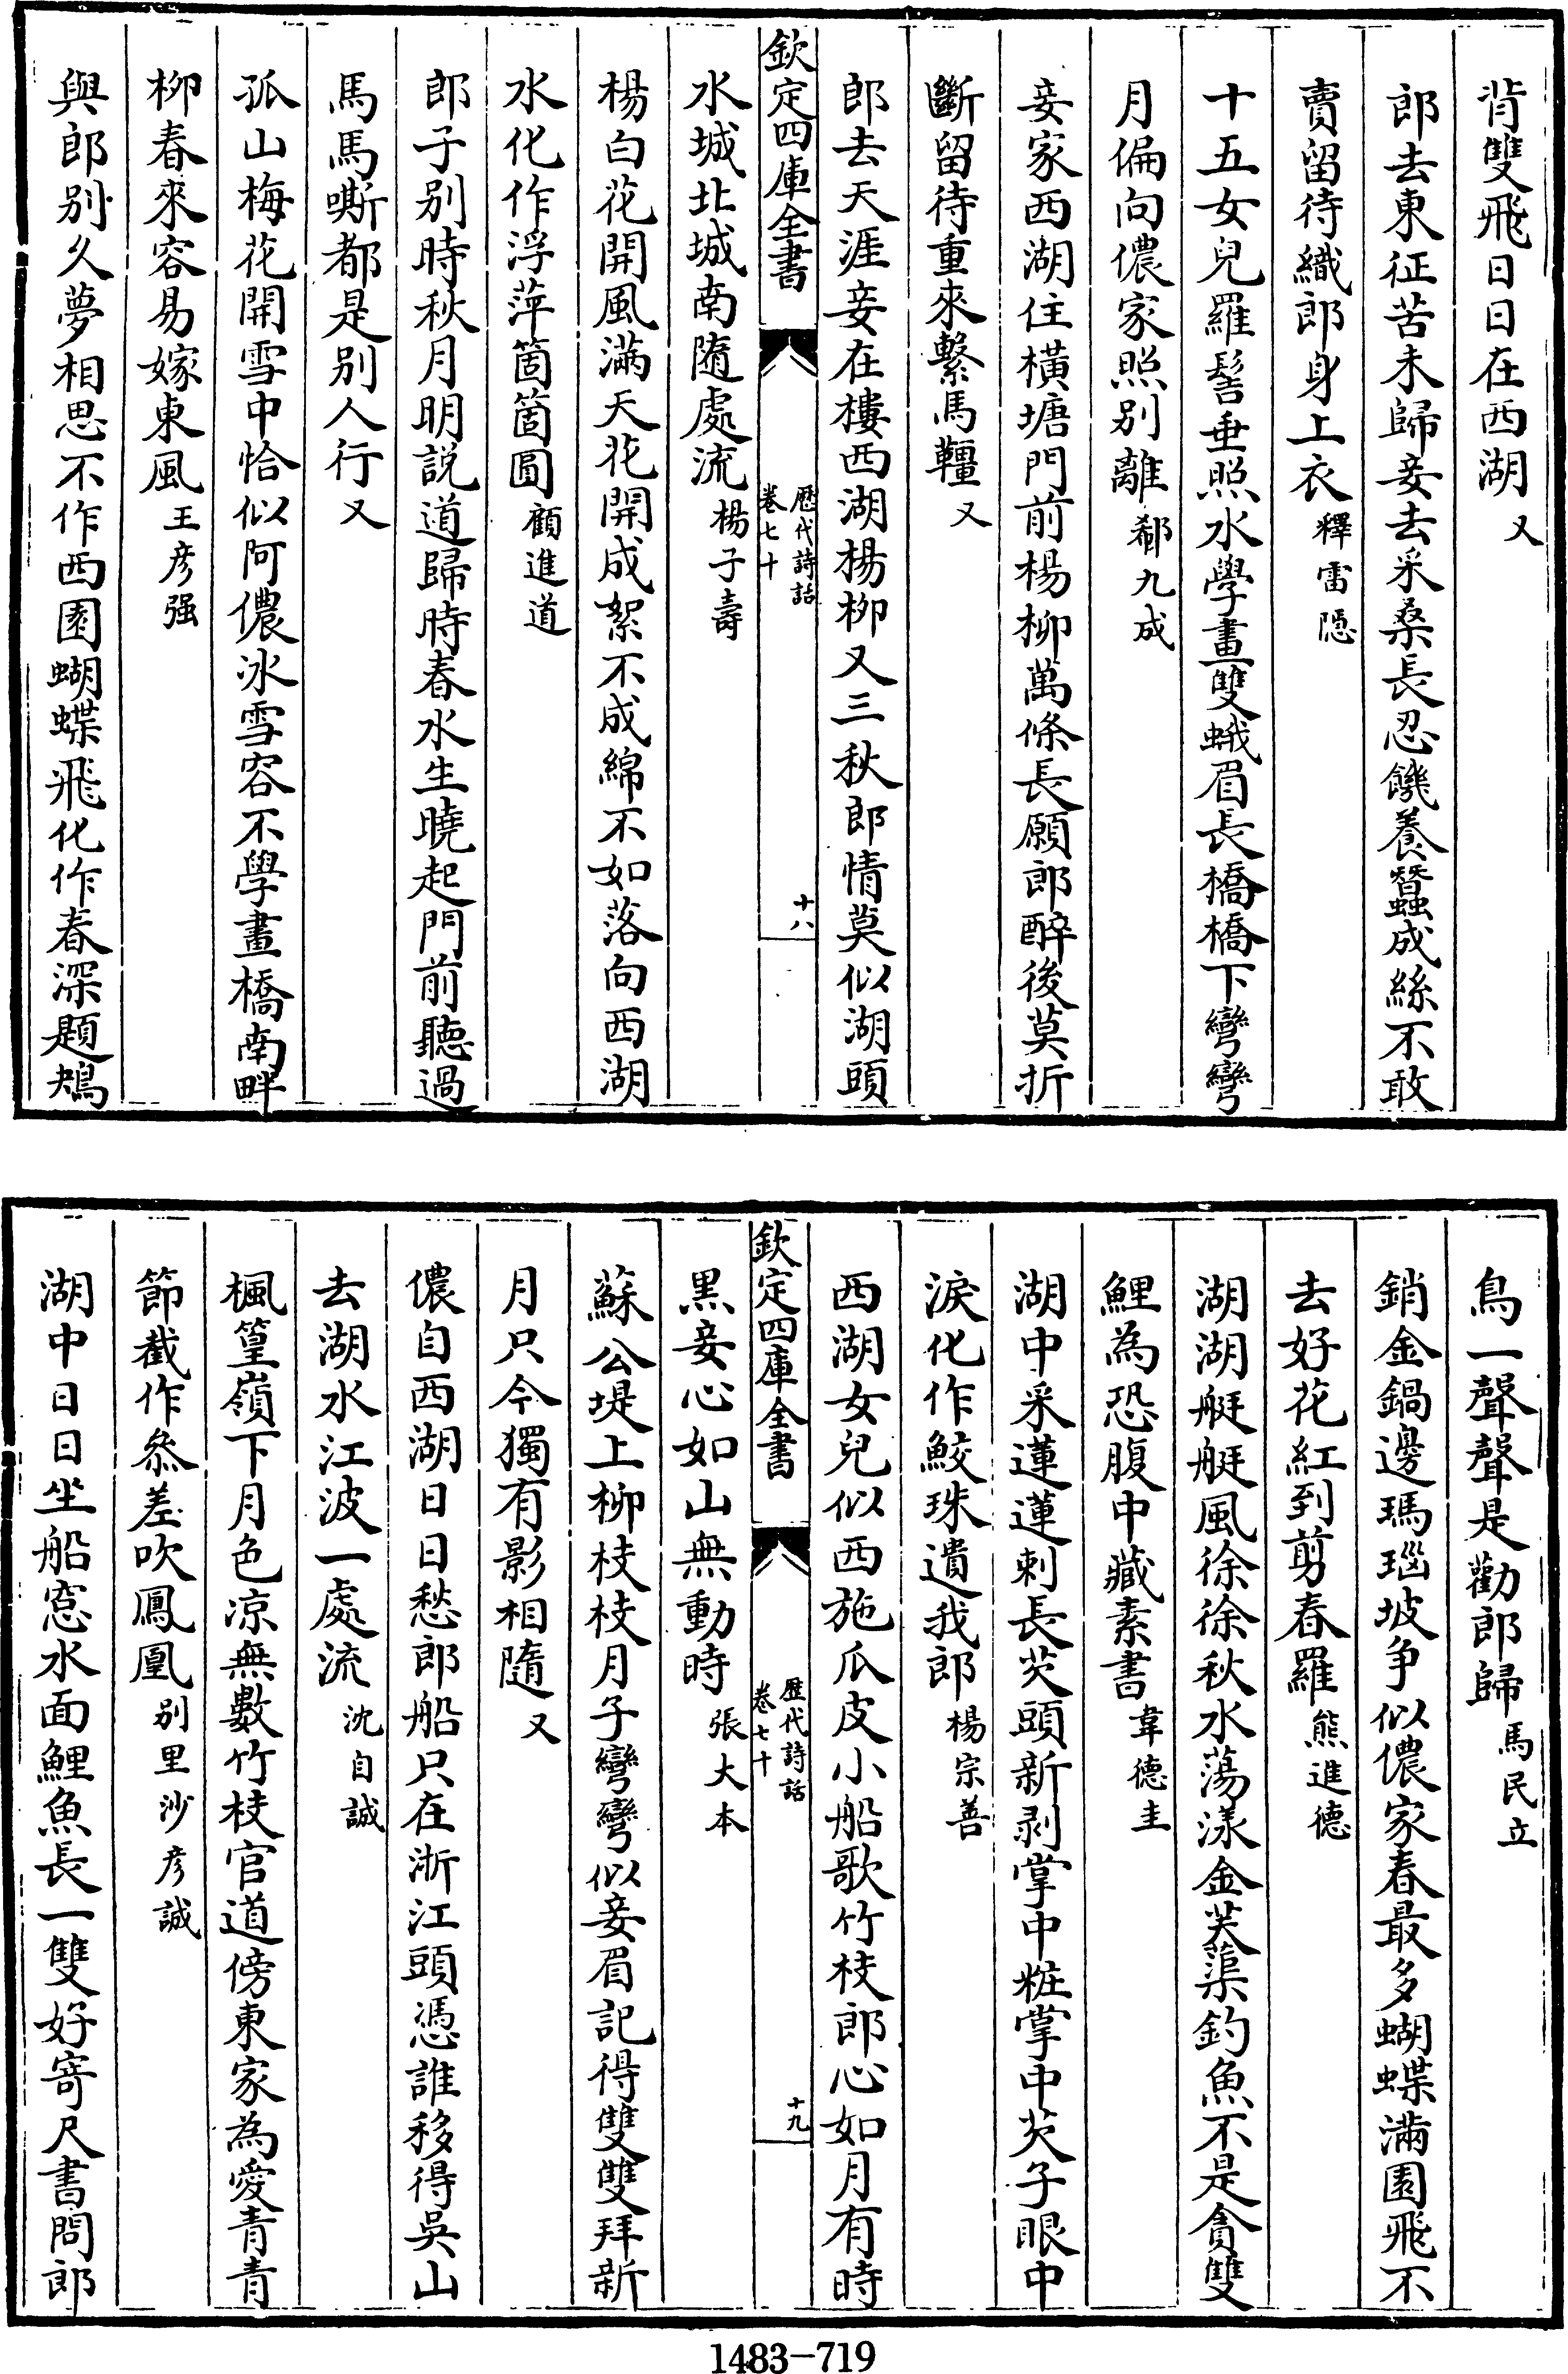 背雙飛日日在西湖又
郎去東征苦未歸妾去采桑長忍饑養蠶成絲不敢
賣留待織郎身上衣釋雷隠
十五女兒羅髻垂照水學畫雙蛾眉長橋橋下彎彎
月偏向儂家照别離郗九成
妾家西湖住橫塘門前楊柳萬條長願郎醉後莫折
斷留待重來繫馬韁又
郎去天涯妾在樓西湖楊柳又三秋郎情莫似湖頭
欽定四庫全書
歴代詩話
卷七十
十八
水城北城南隨處流楊子壽
楊白花開風滿天花開成絮不成綿不如落向西湖
水化作浮萍箇箇圓顧進道
郎子别時秋月明説道歸時春水生曉起門前聽過
馬馬嘶都是别人行又
孤山梅花開雪中恰似阿儂冰雪容不學畫橋南畔
柳春來容易嫁東風王彦强
與郎别久夢相思不作西園蝴蝶飛化作春深題鴂
鳥一聲聲是勸郎歸馬民立
銷金鍋邊瑪瑙坡争似儂家春最多蝴蝶滿園飛不
去好花紅到剪春羅熊進德
湖湖艇艇風徐徐秋水蕩漾金芙蕖釣魚不是貪雙
鯉為恐腹中藏素書韋德圭
湖中采蓮蓮刺長芡頭新剥掌中粧掌中芡子眼中
淚化作鮫珠遺我郎楊宗善
西湖女兒似西施瓜皮小船歌竹枝郎心如月有時
欽定四庫全書
歴代詩話
卷七十
十九
黒妾心如山無動時張大本
蘇公堤上柳枝枝月子彎彎似妾眉記得雙雙拜新
月只今獨有影相隨又
儂自西湖日日愁郎船只在浙江頭憑誰移得吳山
去湖水江波一處流沈自誠
楓篁嶺下月色凉無數竹枝官道傍東家為愛青青
節截作叅差吹鳳凰别里沙彦誠
湖中日日坐船窓水面鯉魚長一雙好寄尺書問郎
1483-719